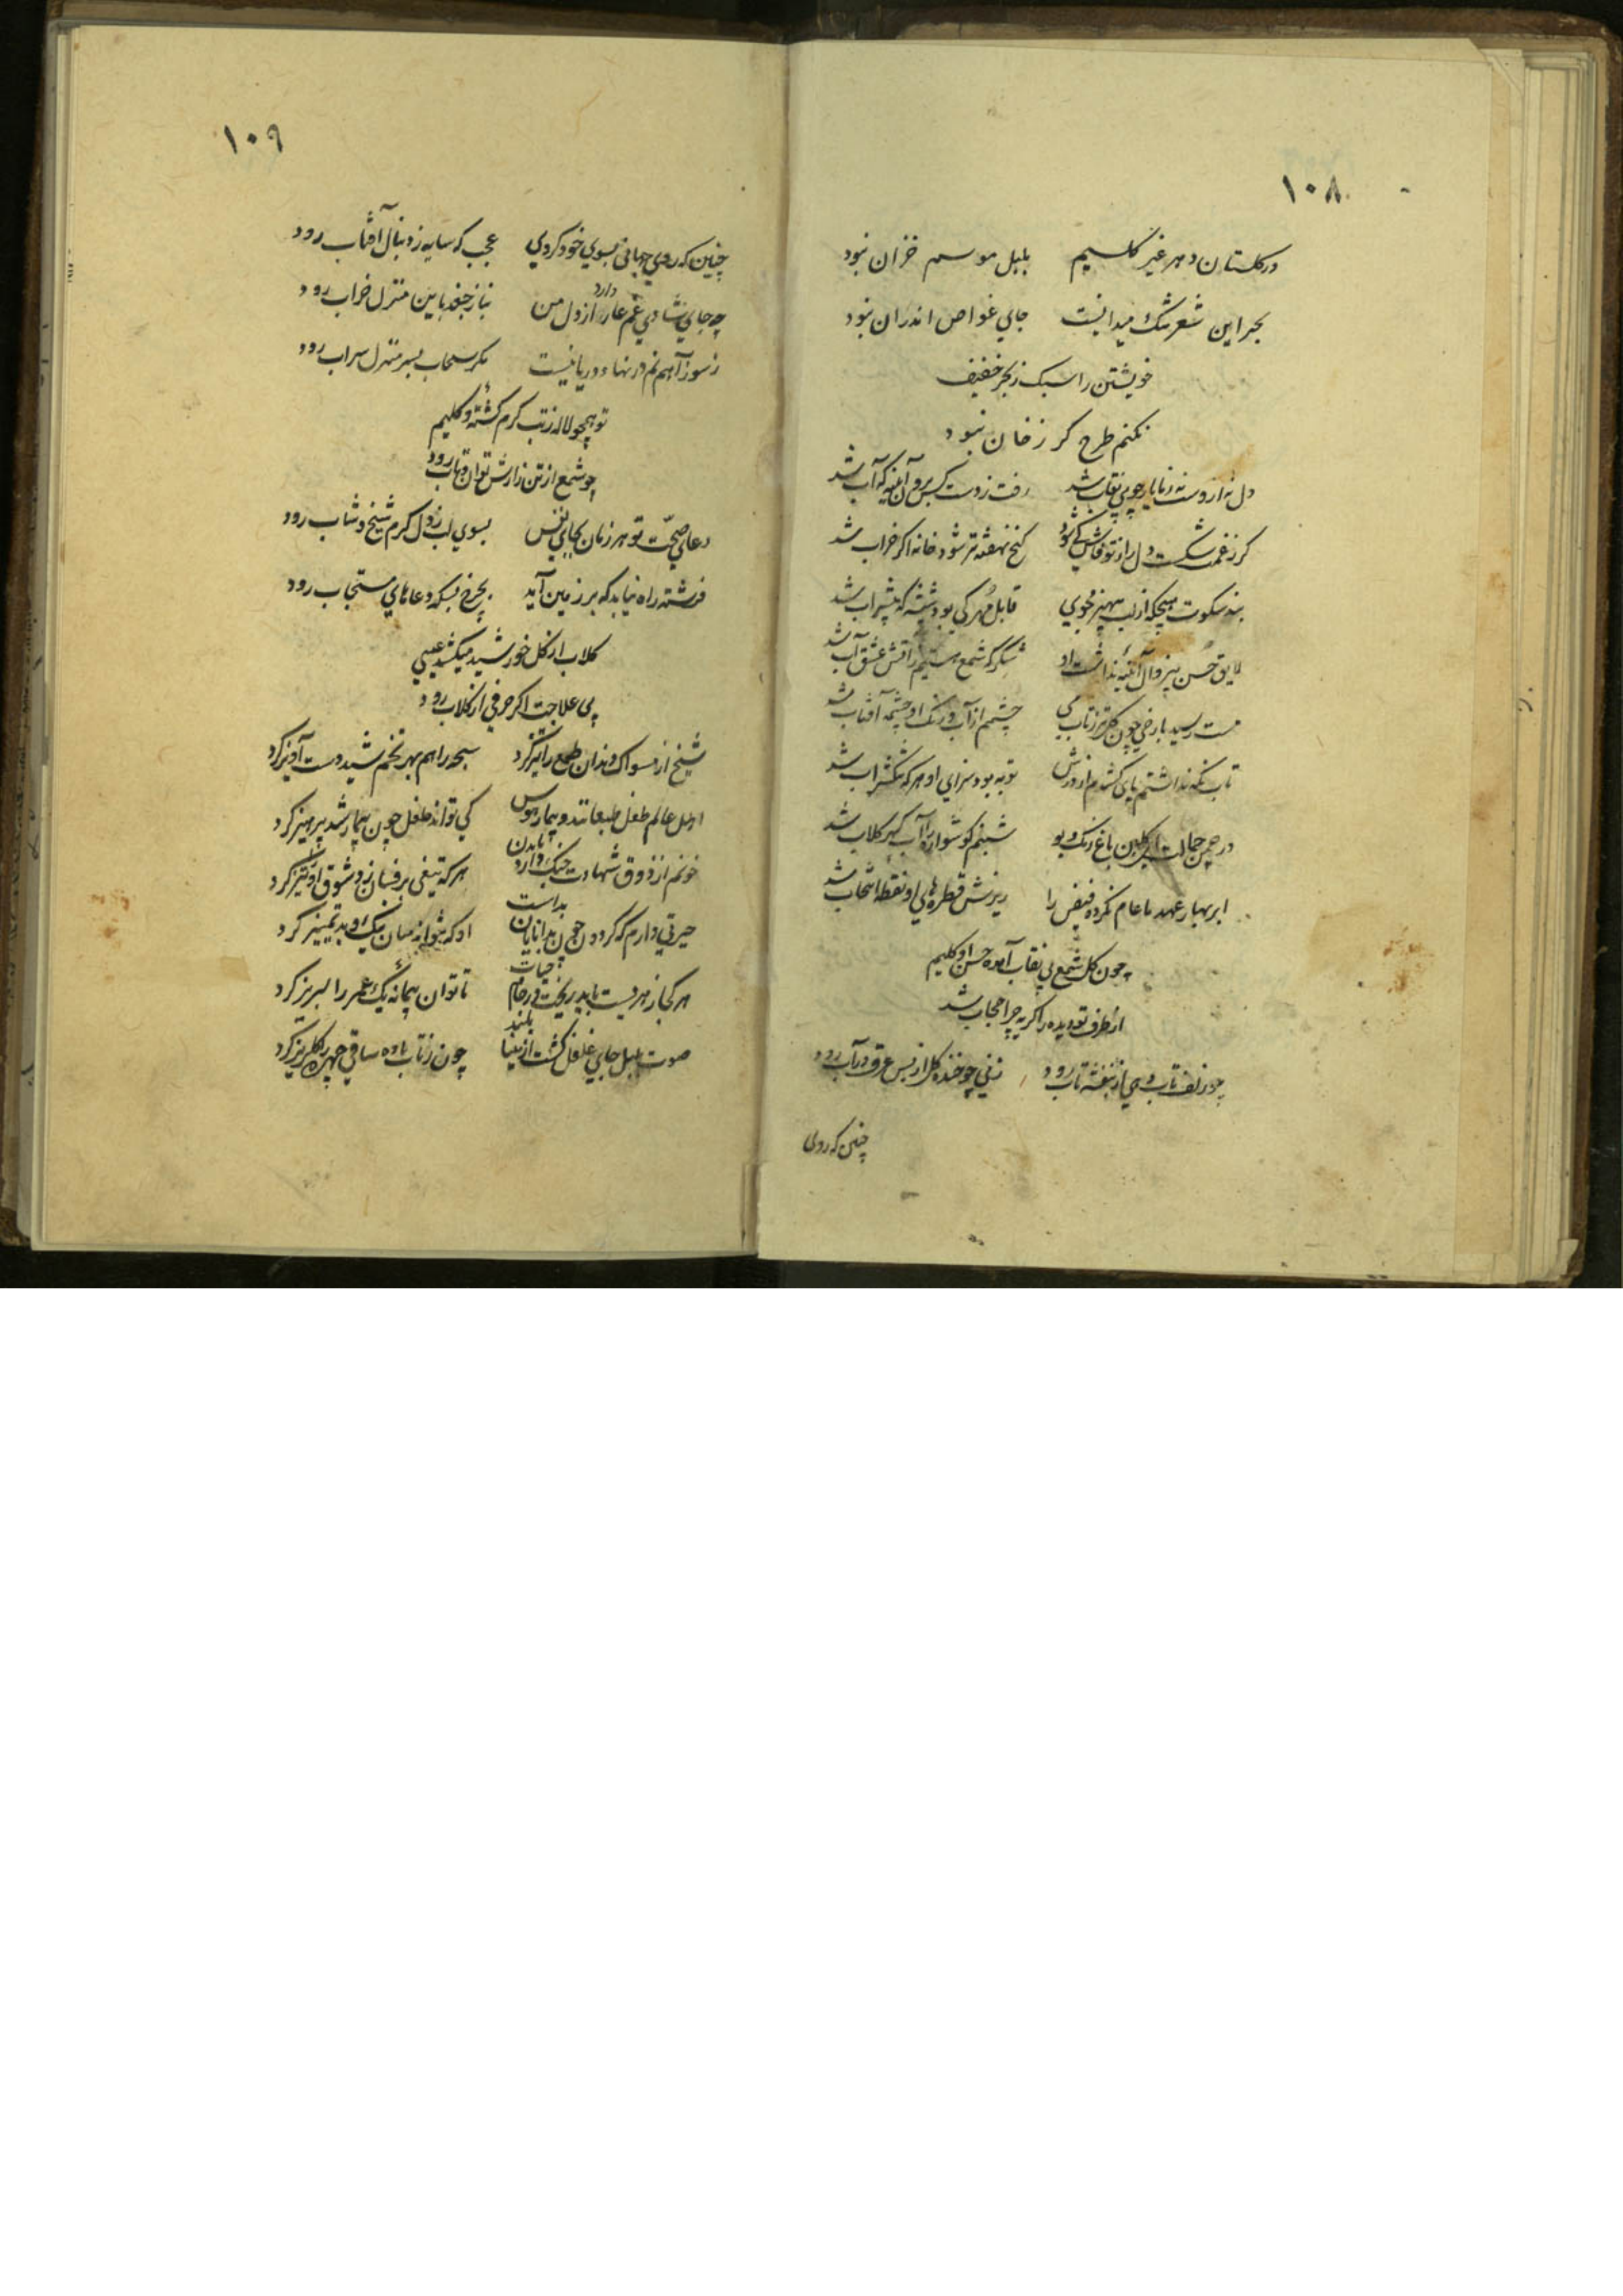 ۱۰۸
در کلستان دهر غیر کلیم بلبل موسم خزان نبود
بحر این شعر تنک میدانیست جای غواص اندران نبود
خویشتن را سبک ز بحر خفیف
نکنم طرح کر زخان نبود
دل نه ار وست نه یار چو بی نقاب شد رفت ز دست کس برون آینه که آب شد
کر ز غمت شکست دل راز تو فاش کی شود کنج نهفته تر شود خانه اکر خراب شد
به سکوت هیچکه از لب مجوی قابل مهر کی بود شیشه که پر شراب شد
لایق حسن بیزوال آینه نداشت او شکر که شمع هستیم ز آتش عشق آب شد
مست رسید با رخی چون کل تر ز تاب می چشمم از آب و رنک او چشمه آفتاب شد
تاب نکه نداشتم پای کشدم از درش توبه بود سزای او هر که تنک شراب شد
در چمن جمالت ای کلبن باغ رنک و بو شبنم کوشواره را آب کهر کلاب شد
ابر بهار عهد ما عام نکرده فیض را ریزش قطره های او نقطه انتخاب شد
چون کل شمع بی نقاب آمده حسن او کلیم
از طرف تو دیده را کریه چرا حجاب شد
چو زلف تاب دهی از بنفشه تاب رود زنی چو خنده کل از بس عرق در آب رود
چنین که روی
۱۰۹
چنین که روی جهانی بسوی خود کردی عجب که سایه ز دنبال آفتاب رود
چه جای شادی غم عار دارد از دل من نیاز جغد باین منزل خراب رود
ز سوز آهم نم در نهاد دریا نیست مکر سحاب بسر منزل سراب رود
تو همچو لاله ز تب کرم کشته و کلیم
چو شمع از تن زارش توان و تاب رود
دعای صحت تو هر زمان بجای نفس بسوی لب ز دل کرم شیخ و شاب رود
فرشته راه نیابد که بر زمین آید بچرخ بسکه دعاهای مستجاب رود
کلاب از کل خورشید میکشد عیسی
پی علاجت اکر حرفی از کلاب رود
شیخ از مسواک دندان طمع را تیز کرد سبحه را هم بهر تخم شید دست آویز کرد
اهل عالم طفل طبعانند و بیمار هوس کی تواند طفل چون بیمار شد پرهیز کرد
خونم از ذوق شهادت جنک دارد با بدن هر که تیغی بر فسان زد شوق او را تیز کرد
حیرتی دارم که کردون چون بدانایان بد است او که نتواند میان نیک و بد تمییز کرد
هر کجا زهریست باید ریخت در جام حیات تا توان پیمانه یک عمر را لبریز کرد
صوت بلبل جای غلغل کشت از مینا بلند چون ز تاب باده ساقی چهره را کلریز کرد